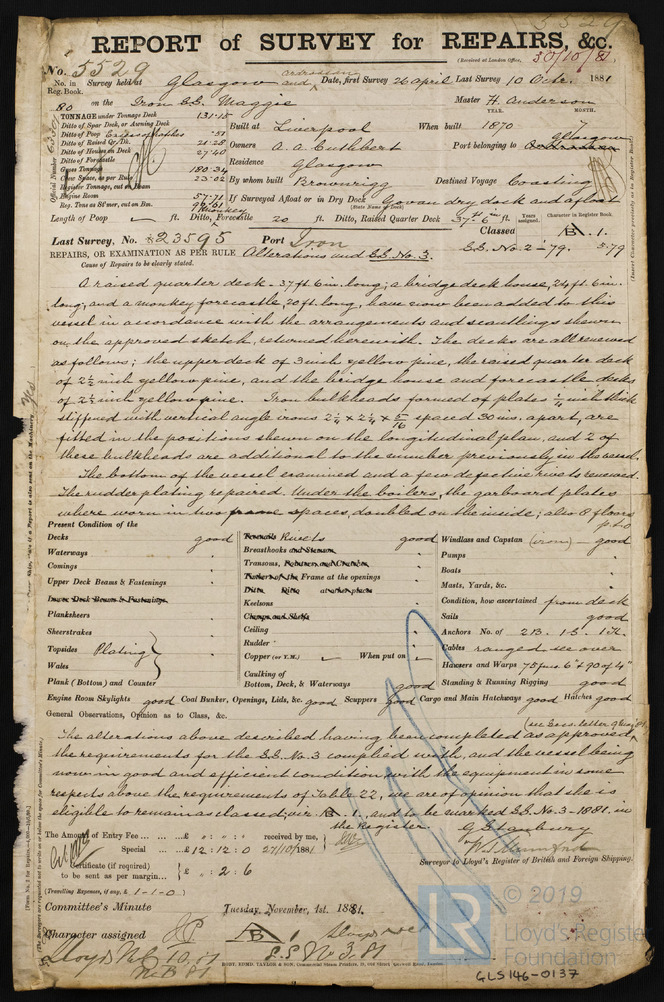 5529
REPORT of SURVEY for REPAIRS, &c.
(Received at London Office, 30/10/81
No. 5529
No. in Reg. Book. Survey held at Glasgow and Ardrossan Date, first Survey 26 April Last Survey 10 Octr. 1881
80 on the Iron S.S. Maggie Master H. Anderson
TONNAGE under Tonnage Deck 131.15
Ditto of Spar Deck, or Awning Deck
Ditto of Poop Excess of Hatches .51
Ditto of Raised Qr. Dk. 21.28
Ditto of Houses on Deck 27.40
Ditto of Forecastle
Gross Tonnage 180.34
Crew Space, as per Rule 23.02
Register Tonnage, cut on Beam
Engine Room 57.71
Reg. Tons as St'mer, cut on Bm. 99.61
Official Number
Built at Liverpool When built 1870 YEAR. MONTH. 7
Owners A. A. Cuthbert Port belonging to Ardrossan Glasgow
Residence Glasgow
By whom built Brownrigg Destined Voyage Coasting
If Surveyed Afloat or in Dry Dock Govan dry dock and afloat
(State Name of Dock)
Length of Poop ft. Ditto, Monkey Forecastle 20 ft. Ditto, Raised Quarter Deck 37ft 6in ft. Years assigned. Character in Register Book.
Last Survey, No. 23595 Port Iron Classed B. 1.
S.S. No. 2-79. 3.79
REPAIRS, OR EXAMINATION AS PER RULE Alterations and S.S. No. 3.
Cause of Repairs to be clearly stated.
A raised quarter deck - 37 ft 6 in. long; a bridge deck house, 24 ft. 6 in.
long, and a monkey forecastle, 20 ft. long, have now been added to this
vessel in accordance with the arrangements and scantlings shewn
on the approved sketch, returned herewith. The decks are all renewed
as follows; the upper deck of 3 inch yellow pine, the raised quarter deck
of 2½ inch yellow pine, and the bridge house and forecastle decks
of 2½ inch yellow pine. Iron bulkheads formed of plates ¼ inch thick
stiffened with vertical angle irons 2¼ x 2¼ x 5/16 spaced 30 ins. apart, are
fitted in the positions shewn on the longitudinal plan, and 2 of
these bulkheads are additional to the number previously in the vessel.
The bottom of the vessel examined and a few defective rivets renewed.
The rudder plating repaired. Under the boilers, the garboard plates
where worn in two frame spaces, doubled on the inside; also 8 floors
p.t.o
Present Condition of the
Decks good
Waterways "
Comings "
Upper Deck Beams & Fastenings "
Lower Deck Beams & Fastenings
Planksheers "
Sheerstrakes
Topsides Plating
Wales
Plank (Bottom) and Counter "
Treenails Rivets good
Breasthooks and Stemson "
Transoms, Pointers and Crutches "
Timbers of the Frame at the openings "
Ditto Ditto at other places
Keelsons "
Clamps and Shelfs
Ceiling "
Rudder "
Copper (or Y.M.) When put on
Caulking of
Bottom, Deck, & Waterways good
Windlass and Capstan (iron) good
Pumps "
Boats "
Masts, Yards, &c. "
Condition, how ascertained from deck
Sails good
Anchors No. of 2B. 1S. 1K.
Cables ranged see over
Hawsers and Warps 75 fms. 6" & 90 of 4"
Standing & Running Rigging good
Engine Room Skylights good Coal Bunker, Openings, Lids, &c. good Scuppers good Cargo and Main Hatchways good Hatches good
General Observations, Opinion as to Class, &c.
The alterations above described having been completed as approved,
the requirements for the S.S. No. 3 complied with, and the vessel being
now in good and efficient condition, with the equipment in some
respects above the requirements of Table 22, we are of opinion that she is
eligible to remain as classed, viz. B. 1., and to be marked S.S. No. 3-1881. in
the register.
The Amount of Entry Fee ... ... £ " : " : " received by me,
Special ... ... £ 12 : 12 : 0 27/10/1881
Certificate (if required) to be sent as per margin... £ " : 2 : 6
(Travelling Expenses, if any, £ 1-1-0)
Surveyor to Lloyd's Register of British and Foreign Shipping.
Committee's Minute Tuesday, November, 1st. 1881.
Character assigned B 1
Lloyds M.C 10.81
N.B 81
S.S No 3.81
© 2019
LR
Lloyd's Register
Foundation
GLS146-0137